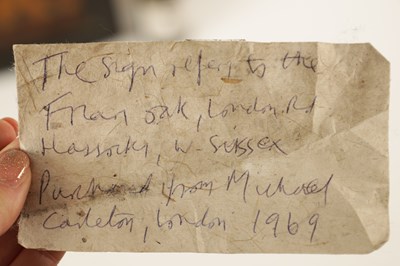 The sign refers to the
Friar oak, London Rd.
Hassocks, W. SUSSEX
Purchased from Michael
Carleton, London 1969